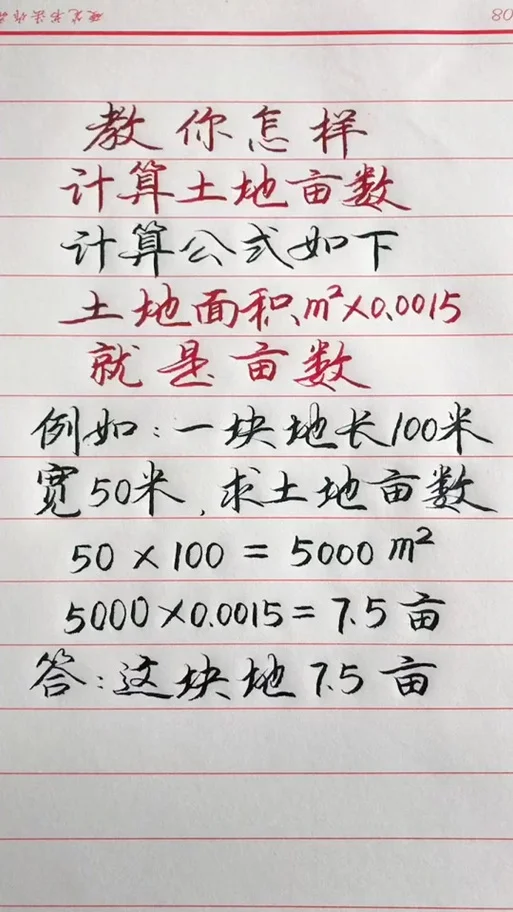 教你怎样
计算土地亩数
计算公式如下
土地面积m²×0.0015
就是亩数
例如:一块地长100米
宽50米,求土地亩数
50×100=5000m²
5000×0.0015=7.5亩
答:这块地7.5亩